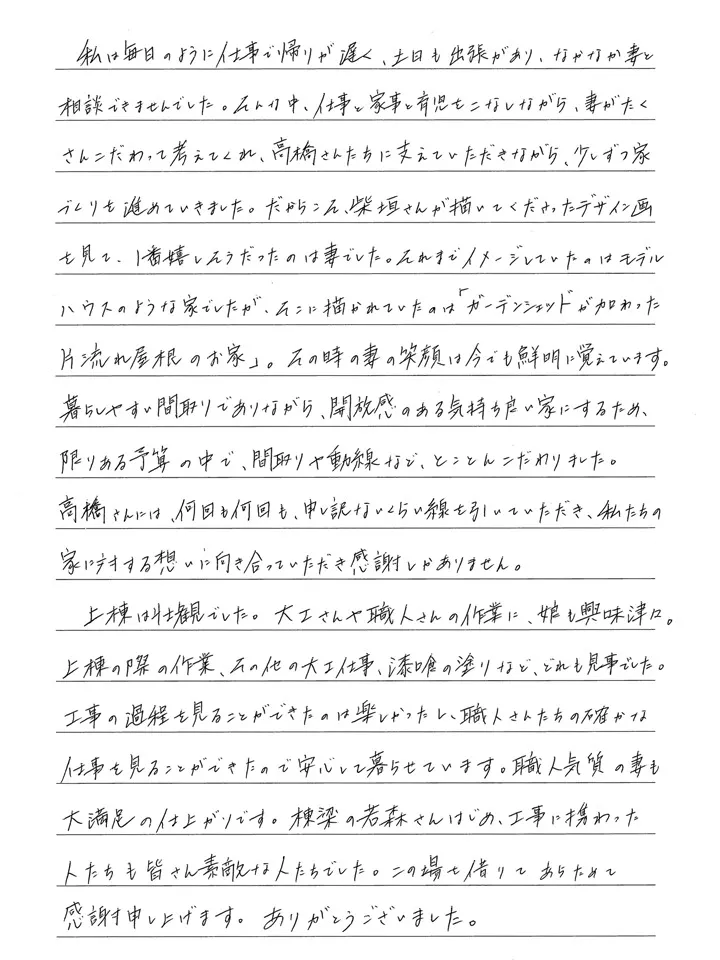 私は毎日のように仕事で帰りが遅く、土日も出張があり、なかなか妻と
相談できませんでした。そんな中、仕事と家事と育児をこなしながら、妻がたく
さんこだわって考えてくれ、高橋さんたちに支えていただきながら、少しずつ家
づくりを進めていきました。だからこそ、柴垣さんが描いてくださったデザイン画
を見て、1番嬉しそうだったのは妻でした。それまでイメージしていたのはモデル
ハウスのような家でしたが、そこに描かれていたのは「ガーデンシェッドが加わった
片流れ屋根のお家」。その時の妻の笑顔は今でも鮮明に覚えています。
暮らしやすい間取りでありながら、開放感のある気持ち良い家にするため、
限りある予算の中で、間取りや動線など、とことんこだわりました。
高橋さんには、何回も何回も、申し訳ないくらい線を引いていただき、私たちの
家に対する想いに向き合っていただき感謝しかありません。
上棟は壮観でした。大工さんや職人さんの作業に、娘も興味津々。
上棟の際の作業、その他の大工仕事、漆喰の塗りなど、どれも見事でした。
工事の過程を見ることができたのは楽しかったし、職人さんたちの確かな
仕事を見ることができたので安心して暮らせています。職人気質の妻も
大満足の仕上がりです。棟梁の若森さんはじめ、工事に携わった
人たちも皆さん素敵な人たちでした。この場を借りてあらためて
感謝申し上げます。ありがとうございました。